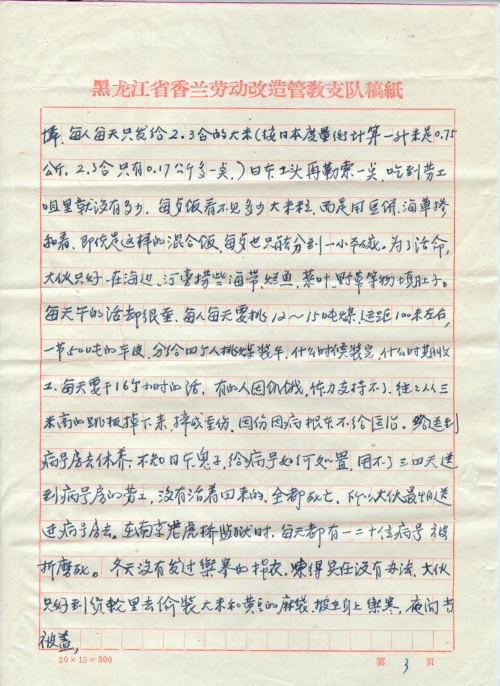 黑龙江省香兰劳动改造管教支队稿紙
每人每天只发给2.3合的大米(按日本度量衡计算一升米是0.75
公斤,2.3合只有0.17公斤多一类,)日本工头再勒索一类,吃到劳工
咀里就没有多少,每歺饭看不见多少大米粒,而是用豆饼,海草掺
和着,即使是这样的混合饭,每歺也只能分到一小半碗。为了活命,
大伙只好在海边、河旁捞些海带、鱼、菜叶、野草等物填肚子。
每天干的活却很重、每人每天要挑12～15吨煤,运距100米左右,
一节500吨的车皮,分给四个人挑煤装车,什么时候装完,什么时期收
工,每天要干16个小时的活,有的人因饥饿,体力支持不了,往之从三
米高的跳板掉下来,摔成重伤,因伤因病根本不给医治。送到
病号房去休养,不知日本鬼子,给病号如何处置,用不了三四天送
到病号房的劳工,没有活着回来的,全都死亡,所以大伙最怕送
进病号房去。在南京老虎桥监狱时,每天都有一二十位病号被
折磨死。冬天没有发过御寒的棉衣,冻得实在没有办法,大伙
只好到货轮里去偷装大米和黄豆的麻袋披在身上御寒,夜间当
被盖,
20×15=300
第 3 页